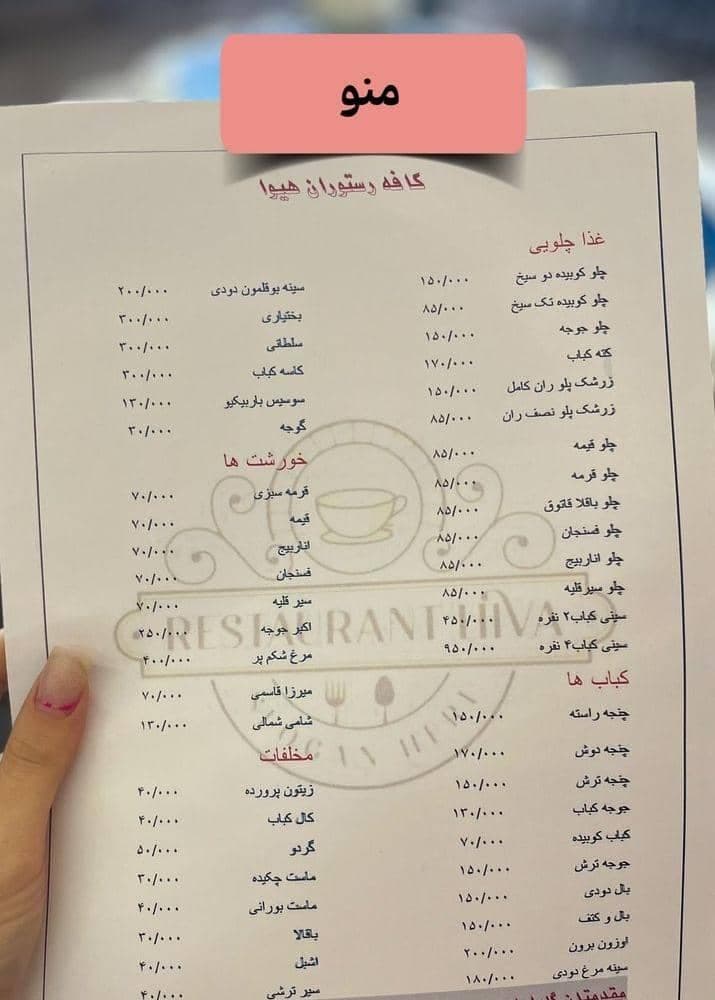 منو
کافه رستوران هیوا
غذا چلویی
چلو کوبیده دو سیخ ۱۵۰/۰۰۰
چلو کوبیده تک سیخ ۸۵/۰۰۰
چلو جوجه ۱۵۰/۰۰۰
کته کباب ۱۷۰/۰۰۰
زرشک پلو ران کامل ۱۵۰/۰۰۰
زرشک پلو نصف ران ۸۵/۰۰۰
چلو قیمه ۸۵/۰۰۰
چلو قرمه ۸۵/۰۰۰
چلو باقلا قاتوق ۸۵/۰۰۰
چلو فسنجان ۸۵/۰۰۰
چلو اناربیج ۸۵/۰۰۰
چلو سیرقلیه ۸۵/۰۰۰
سینی کباب۲ نفره ۴۵۰/۰۰۰
سینی کباب۴ نفره ۹۵۰/۰۰۰
کباب ها
چنجه راسته ۱۵۰/۰۰۰
چنجه دوش ۱۷۰/۰۰۰
چنجه ترش ۱۵۰/۰۰۰
جوجه کباب ۱۳۰/۰۰۰
کباب کوبیده ۷۰/۰۰۰
جوجه ترش ۱۵۰/۰۰۰
بال دودی ۱۵۰/۰۰۰
بال و کتف ۱۵۰/۰۰۰
اوزون برون ۲۰۰/۰۰۰
سینه مرغ دودی ۱۸۰/۰۰۰
سینه بوقلمون دودی ۲۰۰/۰۰۰
بختیاری ۳۰۰/۰۰۰
سلطانی ۳۰۰/۰۰۰
کاسه کباب ۳۰۰/۰۰۰
سوسیس باربیکیو ۱۳۰/۰۰۰
گوجه ۳۰/۰۰۰
خورشت ها
قرمه سبزی ۷۰/۰۰۰
قیمه ۷۰/۰۰۰
اناربیج ۷۰/۰۰۰
فسنجان ۷۰/۰۰۰
سیر قلیه ۷۰/۰۰۰
اکبر جوجه ۲۵۰/۰۰۰
مرغ شکم پر ۴۰۰/۰۰۰
میرزا قاسمی ۷۰/۰۰۰
شامی شمالی ۱۳۰/۰۰۰
مخلفات
زیتون پرورده ۴۰/۰۰۰
کال کباب ۴۰/۰۰۰
گردو ۵۰/۰۰۰
ماست چکیده ۳۰/۰۰۰
ماست بورانی ۴۰/۰۰۰
باقالا ۳۰/۰۰۰
اشبل ۴۰/۰۰۰
سیر ترشی ۴۰/۰۰۰
RESTAURANT HIVA